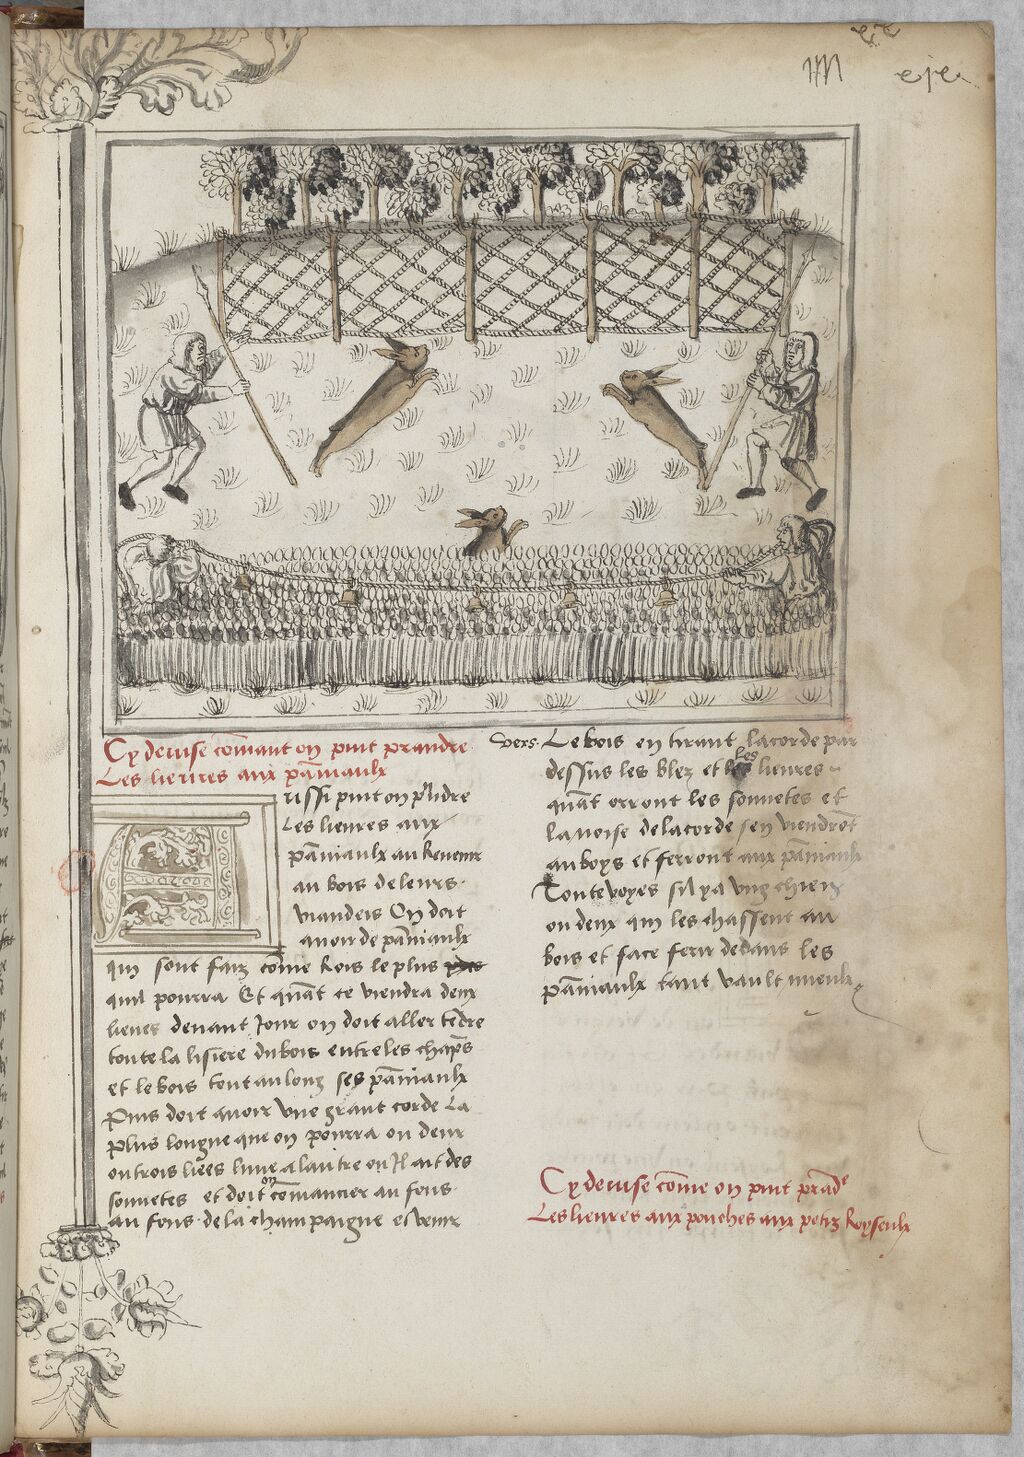 Cy deuise cōmant on puit prandre
Les lieures aux pāniaulx
Aussi puit on p̄ndre
Les lieures aux
pāniaulx au Reuenir
au bois de leurs
viandeis On doit
auoir de pāniaulx
qui sont faiz cōme Rois le plus
quil pourra Et quāt ce viendra deux
lieues deuant Jour on doit aller tēdre
toute la lisiere du bois entre les chāps
et le bois tout au long ses pāniaulx
Puis doit auoir vne grant corde La
plus longue que on pourra ou deux
ou trois liēes lune a lautre ou Il ait des
sonnetes et doit on cōmancier au fons
au fons de la champaigne et venir
vers Le bois en tirant la corde par
dessus les blez et les lieures
quāt orront les sonnetes et
la noise de la corde sen viendrōt
au boys et ferront aux pāniaulx
Toutesuoyes sil ya vng chien
ou deux qui les chassent au
bois et face ferir dedans les
pāniaulx tant vault mieulx
Cy deuise cōme on puit prādre
Les lieures aux pouches aux petiz Royseulx